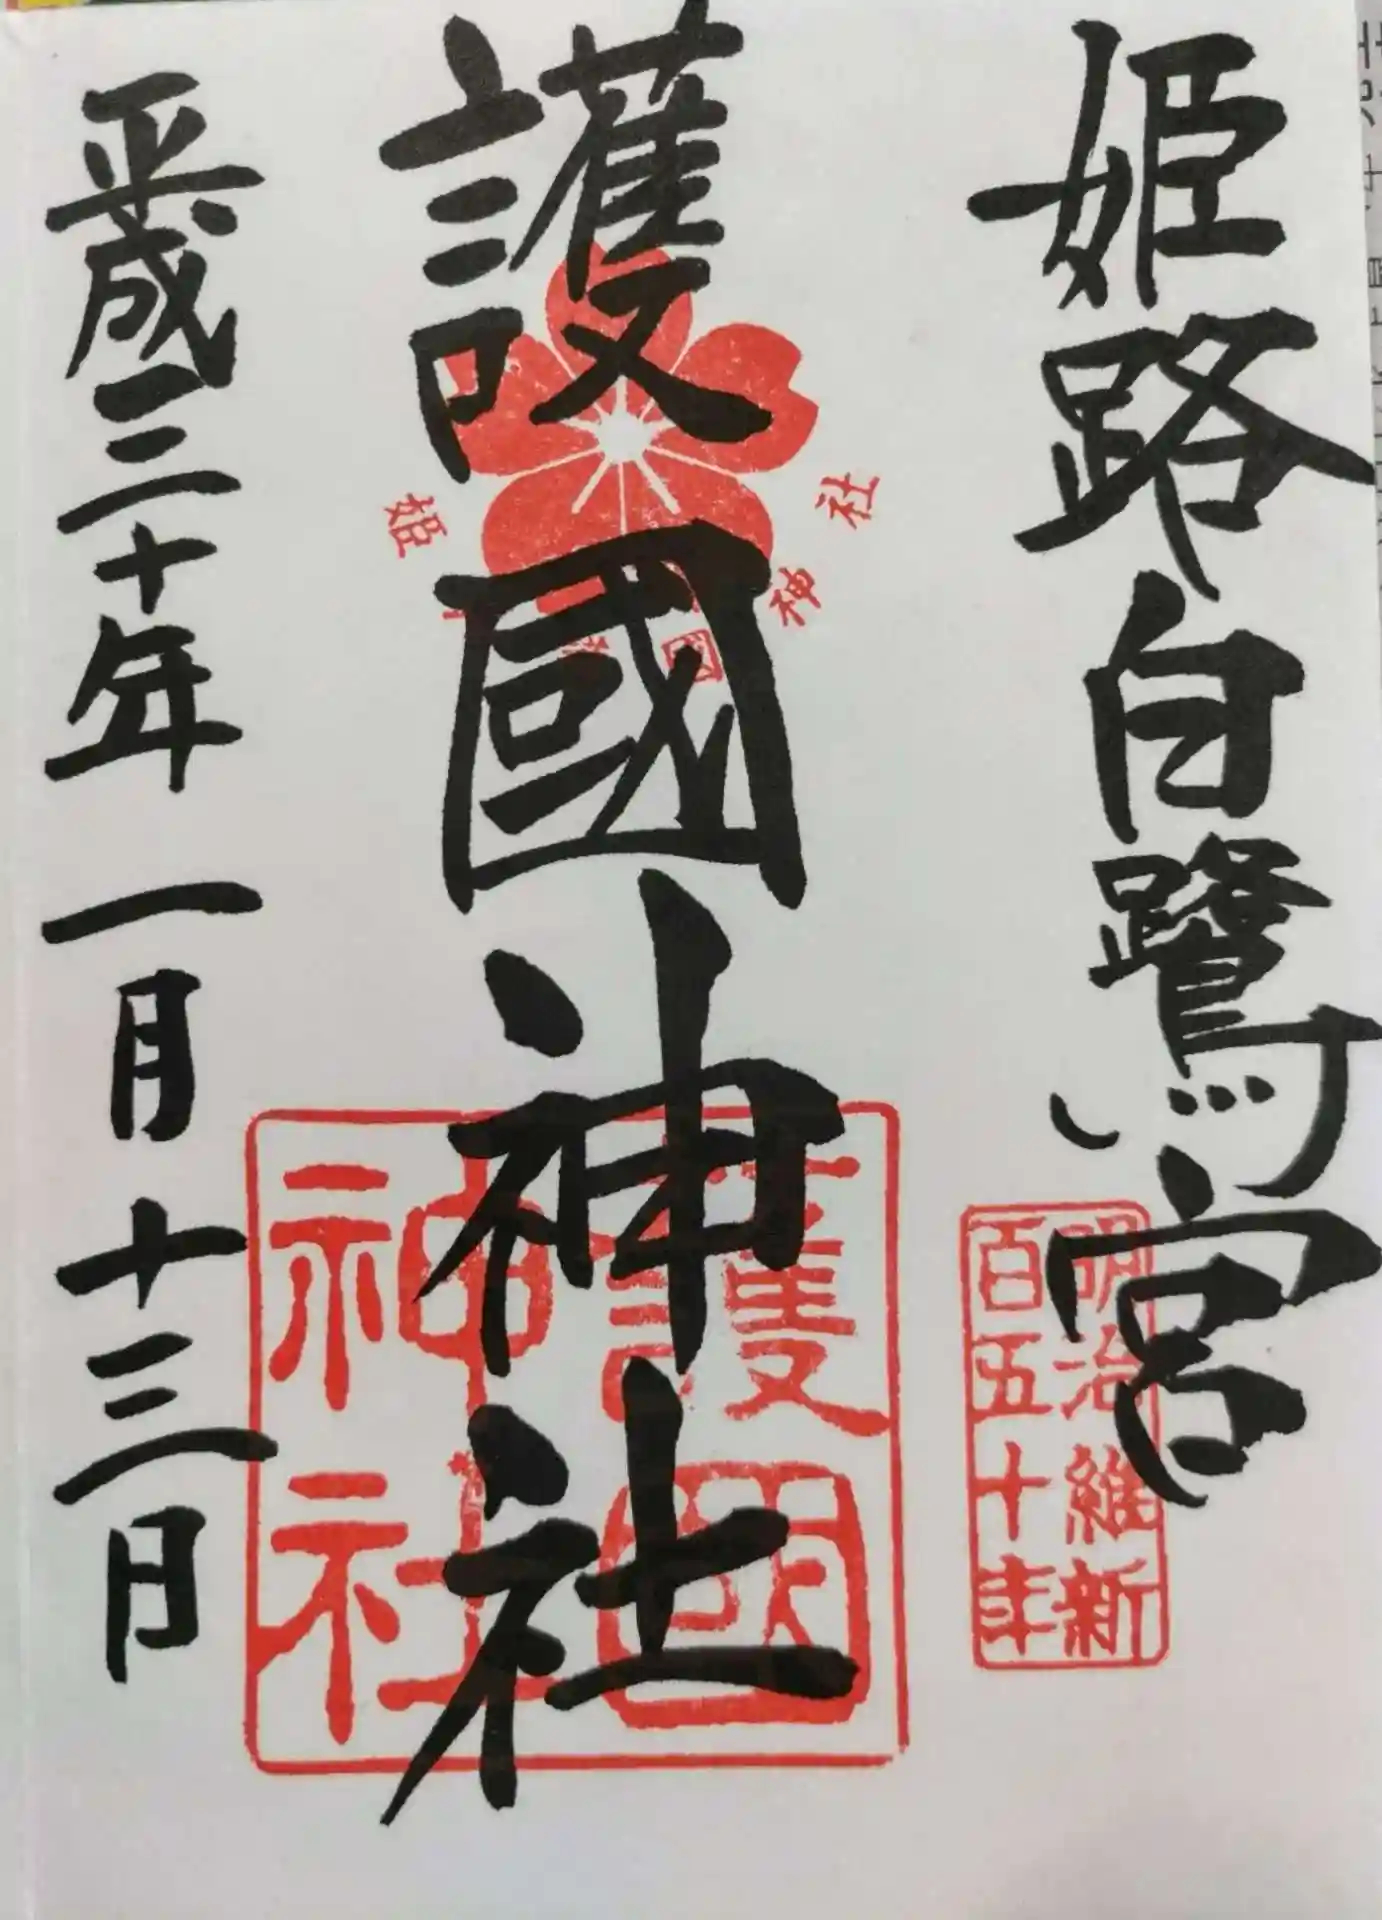 姫路白鷺宮
明治維新
百五十年
護國神社
姫路護國神社
護國
神社
平成三十年一月十三日